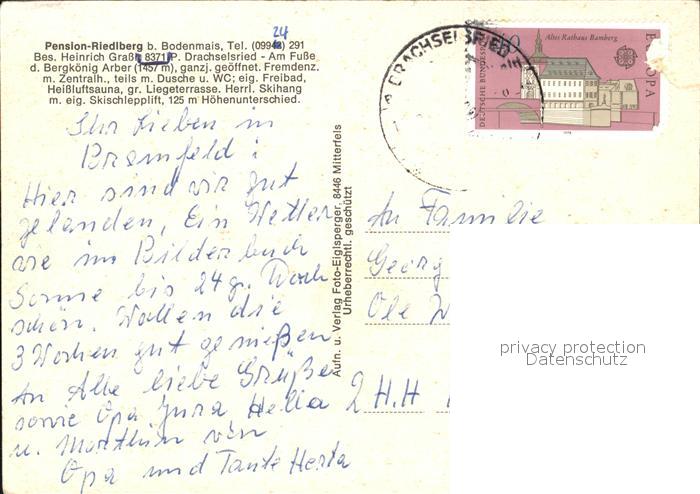 Pension-Riedlberg b. Bodenmais, Tel. (09942) 291
24
Bes. Heinrich Graßl, 8371 P. Drachselsried - Am Fuße
d. Bergkönig Arber (1457 m), ganzj. geöffnet. Fremdenz.
m. Zentralh., teils m. Dusche u. WC; eig. Freibad,
Heißluftsauna, gr. Liegeterrasse. Herrl. Skihang
m. eig. Skischlepplift, 125 m Höhenunterschied.
Ihr Lieben in
Bramfeld!
Hier sind wir gut
gelanden, Ein Wetter
wie im Bilderbuch
Sonne bis 24 g.
schön. Wollen die
3 Wochen gut genießen
An Alle liebe Grüße
sowie Opa Jura Hella
u.
Opa und Tante Herta
Aufn. u. Verlag Foto-Eiglsperger, 8446 Mitterfels
Urheberrechtl. geschützt
DRACHSELSRIED
40
Altes Rathaus Bamberg
DEUTSCHE BUNDESPOST
EUROPA
1978
An Familie
Georg
Ole W
2 H.H
privacy protection
Datenschutz